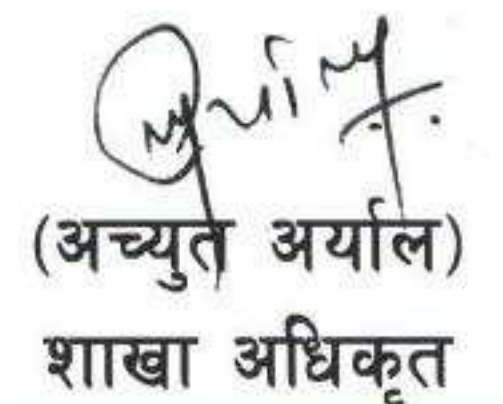 (अच्युत अर्याल)
शाखा अधिकृत